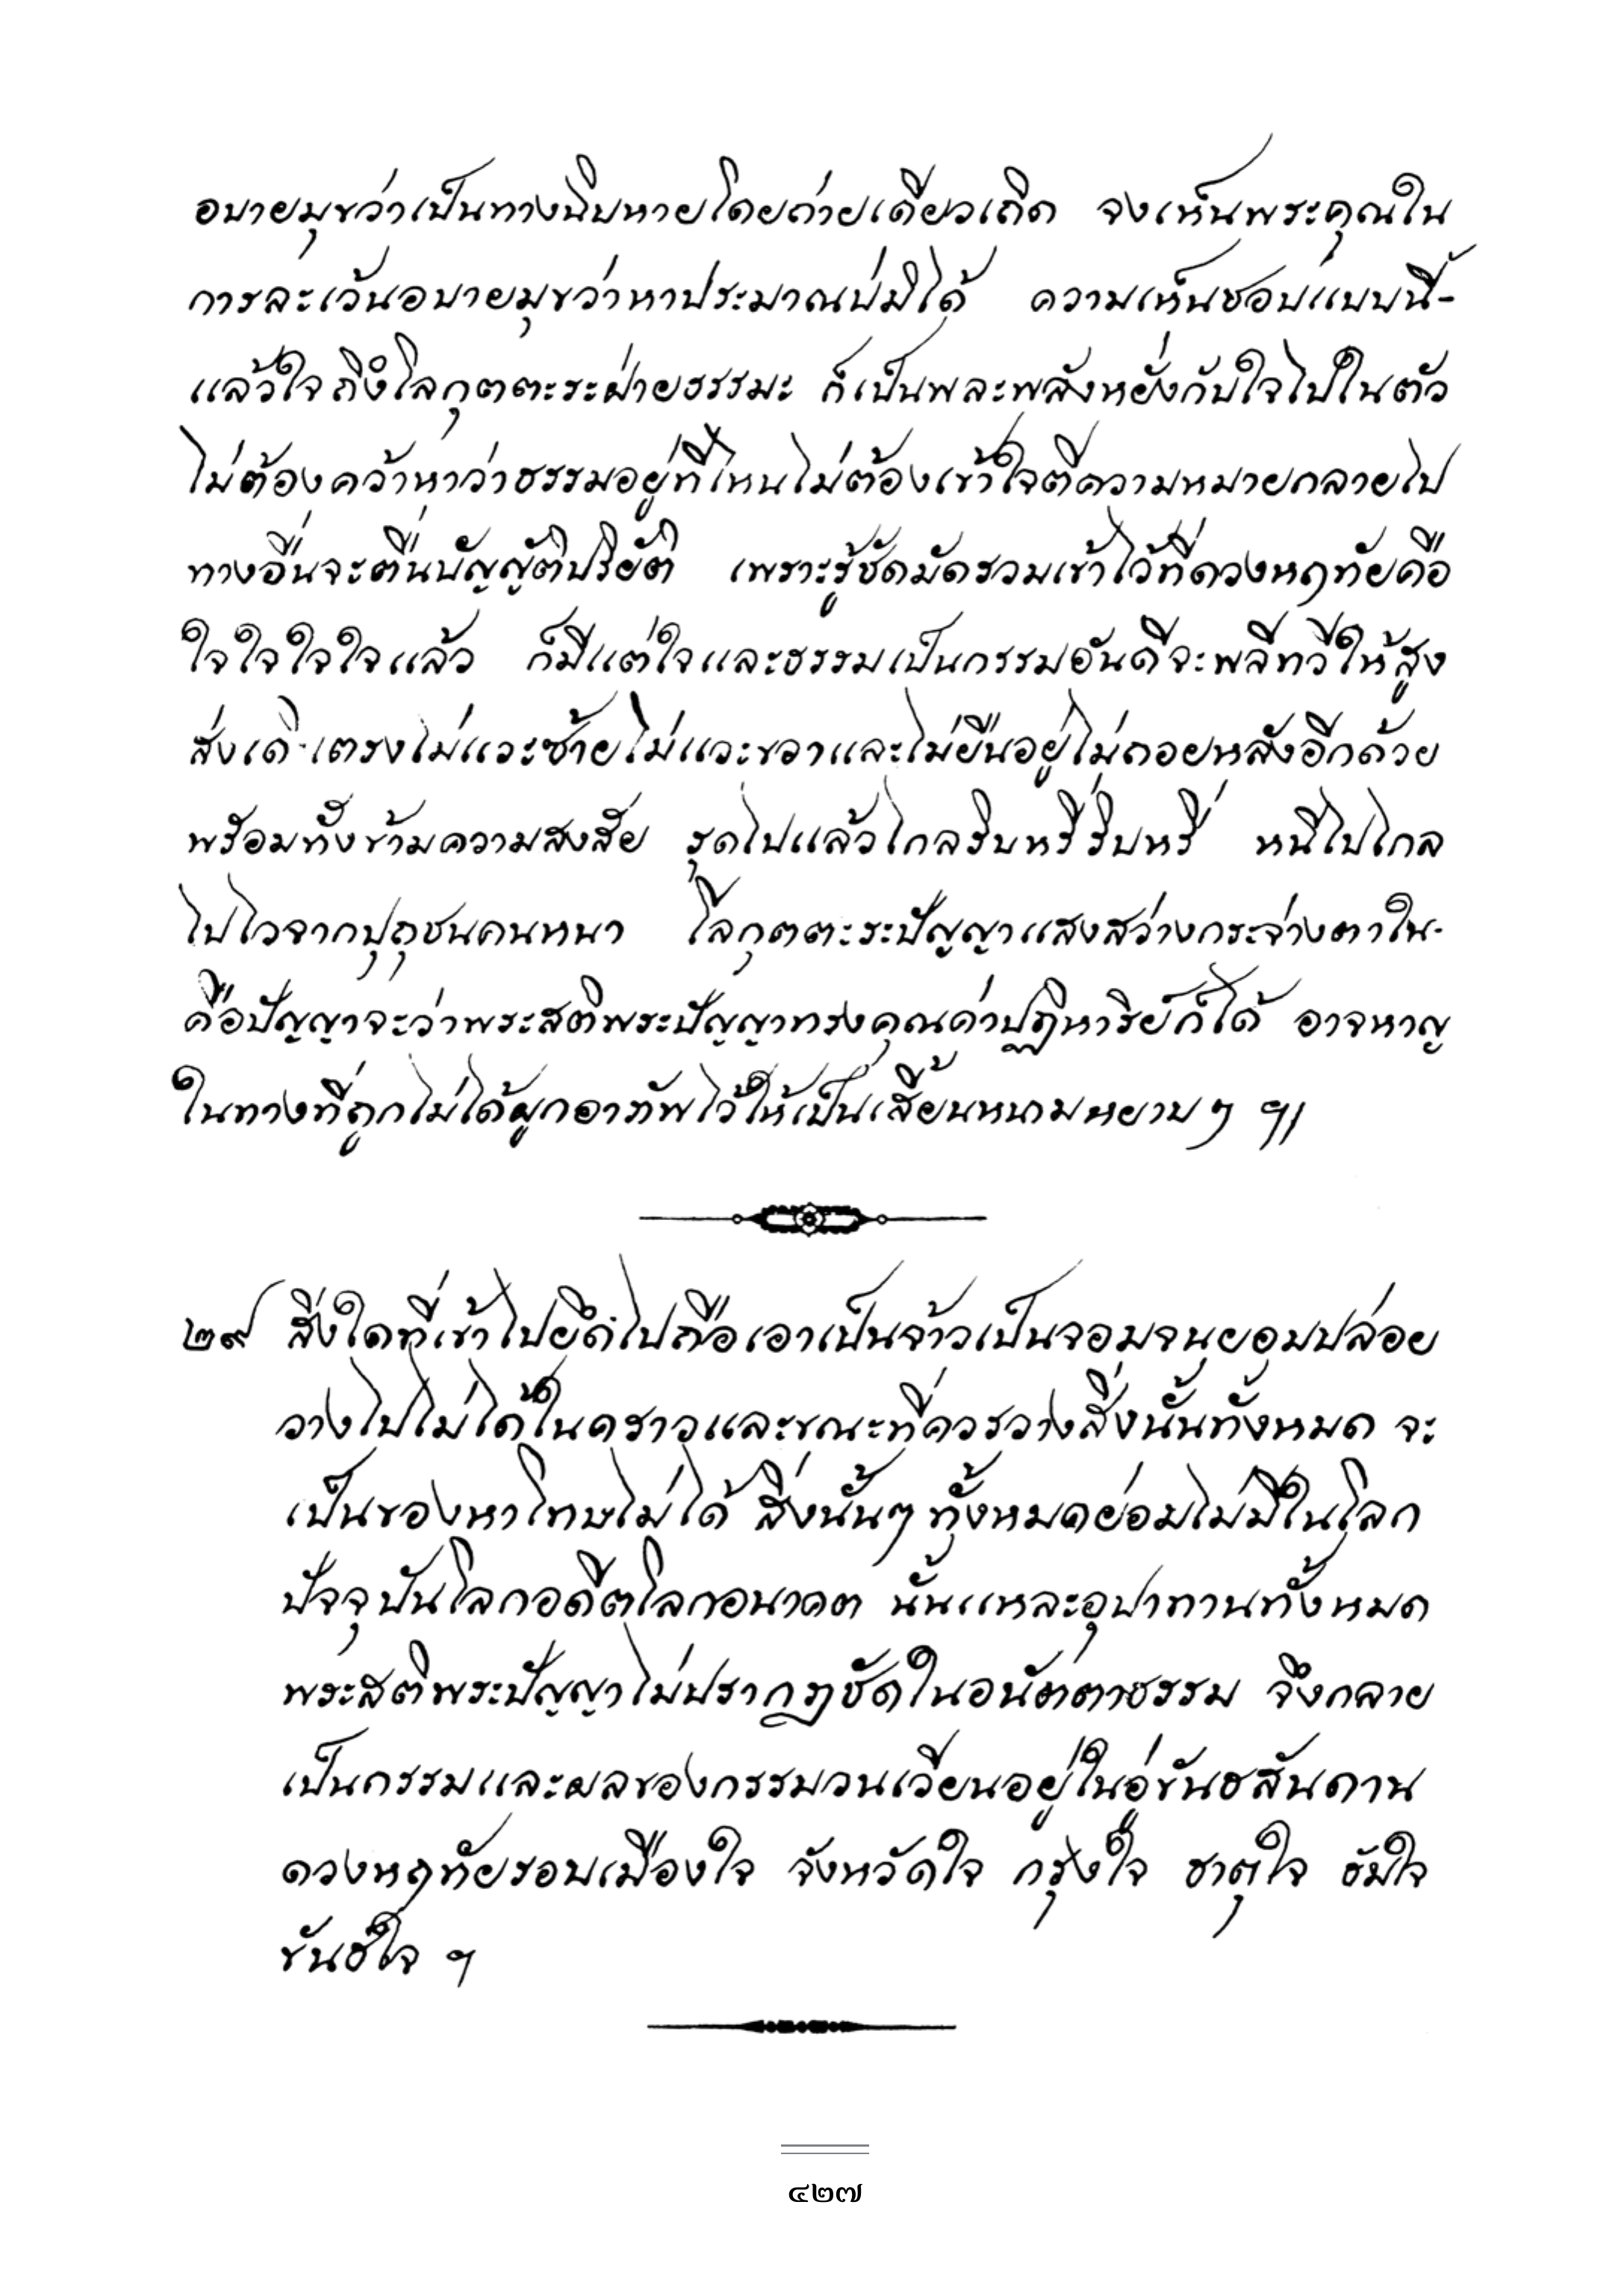 อบายมุขว่าเป็นทางฉิบหายโดยถ่ายเดียวเถิด จงเห็นพระคุณใน
การละเว้นอบายมุขว่าหาประมาณบ่มิได้ ความเห็นชอบแบบนี้-
แล้วใจถึงโลกุตตะระฝ่ายธรรมะ ก็เป็นพละพลังหยั่งกับใจไปในตัว
ไม่ต้องคว้าหาว่าธรรมอยู่ที่ไหนไม่ต้องเข้าใจตีความหมายกลายไป
ทางอื่นจะตื่นบัญญัติปริยัติ เพราะรู้ชัดมัดรวมเข้าไว้ที่ดวงหฤทัยคือ
ใจใจใจใจแล้ว ก็มีแต่ใจและธรรมเป็นกรรมอันดีจะพลีทวีให้สูง
ส่งเด่เตรงไม่แวะซ้ายไม่แวะขวาและไม่ยืนอยู่ไม่ถอยหลังอีกด้วย
พร้อมทั้งข้ามความสงสัย รุดไปแล้วไกลริบหรี่ริบหรี่ หนีไปไกล
ไปไวจากปุถุชนคนหนา โลกุตตะระปัญญาแสงสว่างกระจ่างตาใน
คือปัญญาจะว่าพระสติพระปัญญาทรงคุณค่าปฏิหาริย์ก็ได้ อาจหาญ
ในทางที่ถูกไม่ได้ผูกอาภัพไว้ให้เป็นเสี้ยนหนามหยาบๆ ฯ|
๒๙ สิ่งใดที่เข้าไปยึดไปถือเอาเป็นจ้าวเป็นจอมจนยอมปล่อย
วางไปไม่ได้ในคราวและขณะที่ควรวางสิ่งนั้นทั้งหมด จะ
เป็นของหาโทษไม่ได้ สิ่งนั้นๆทั้งหมดย่อมไม่มีในโลก
ปัจจุปันโลกอดีตโลกอนาคต นั้นแหละอุปาทานทั้งหมด
พระสติพระปัญญาไม่ปรากฏชัดในอนัตตาธรรม จึงกลาย
เป็นกรรมและผลของกรรมวนเวียนอยู่ในอู่ขันธสันดาน
ดวงหฤทัยรอบเมืองใจ จังหวัดใจ กรุงใจ ธาตุใจ ธัมใจ
ขันธ์ใจ ฯ
๔๒๗